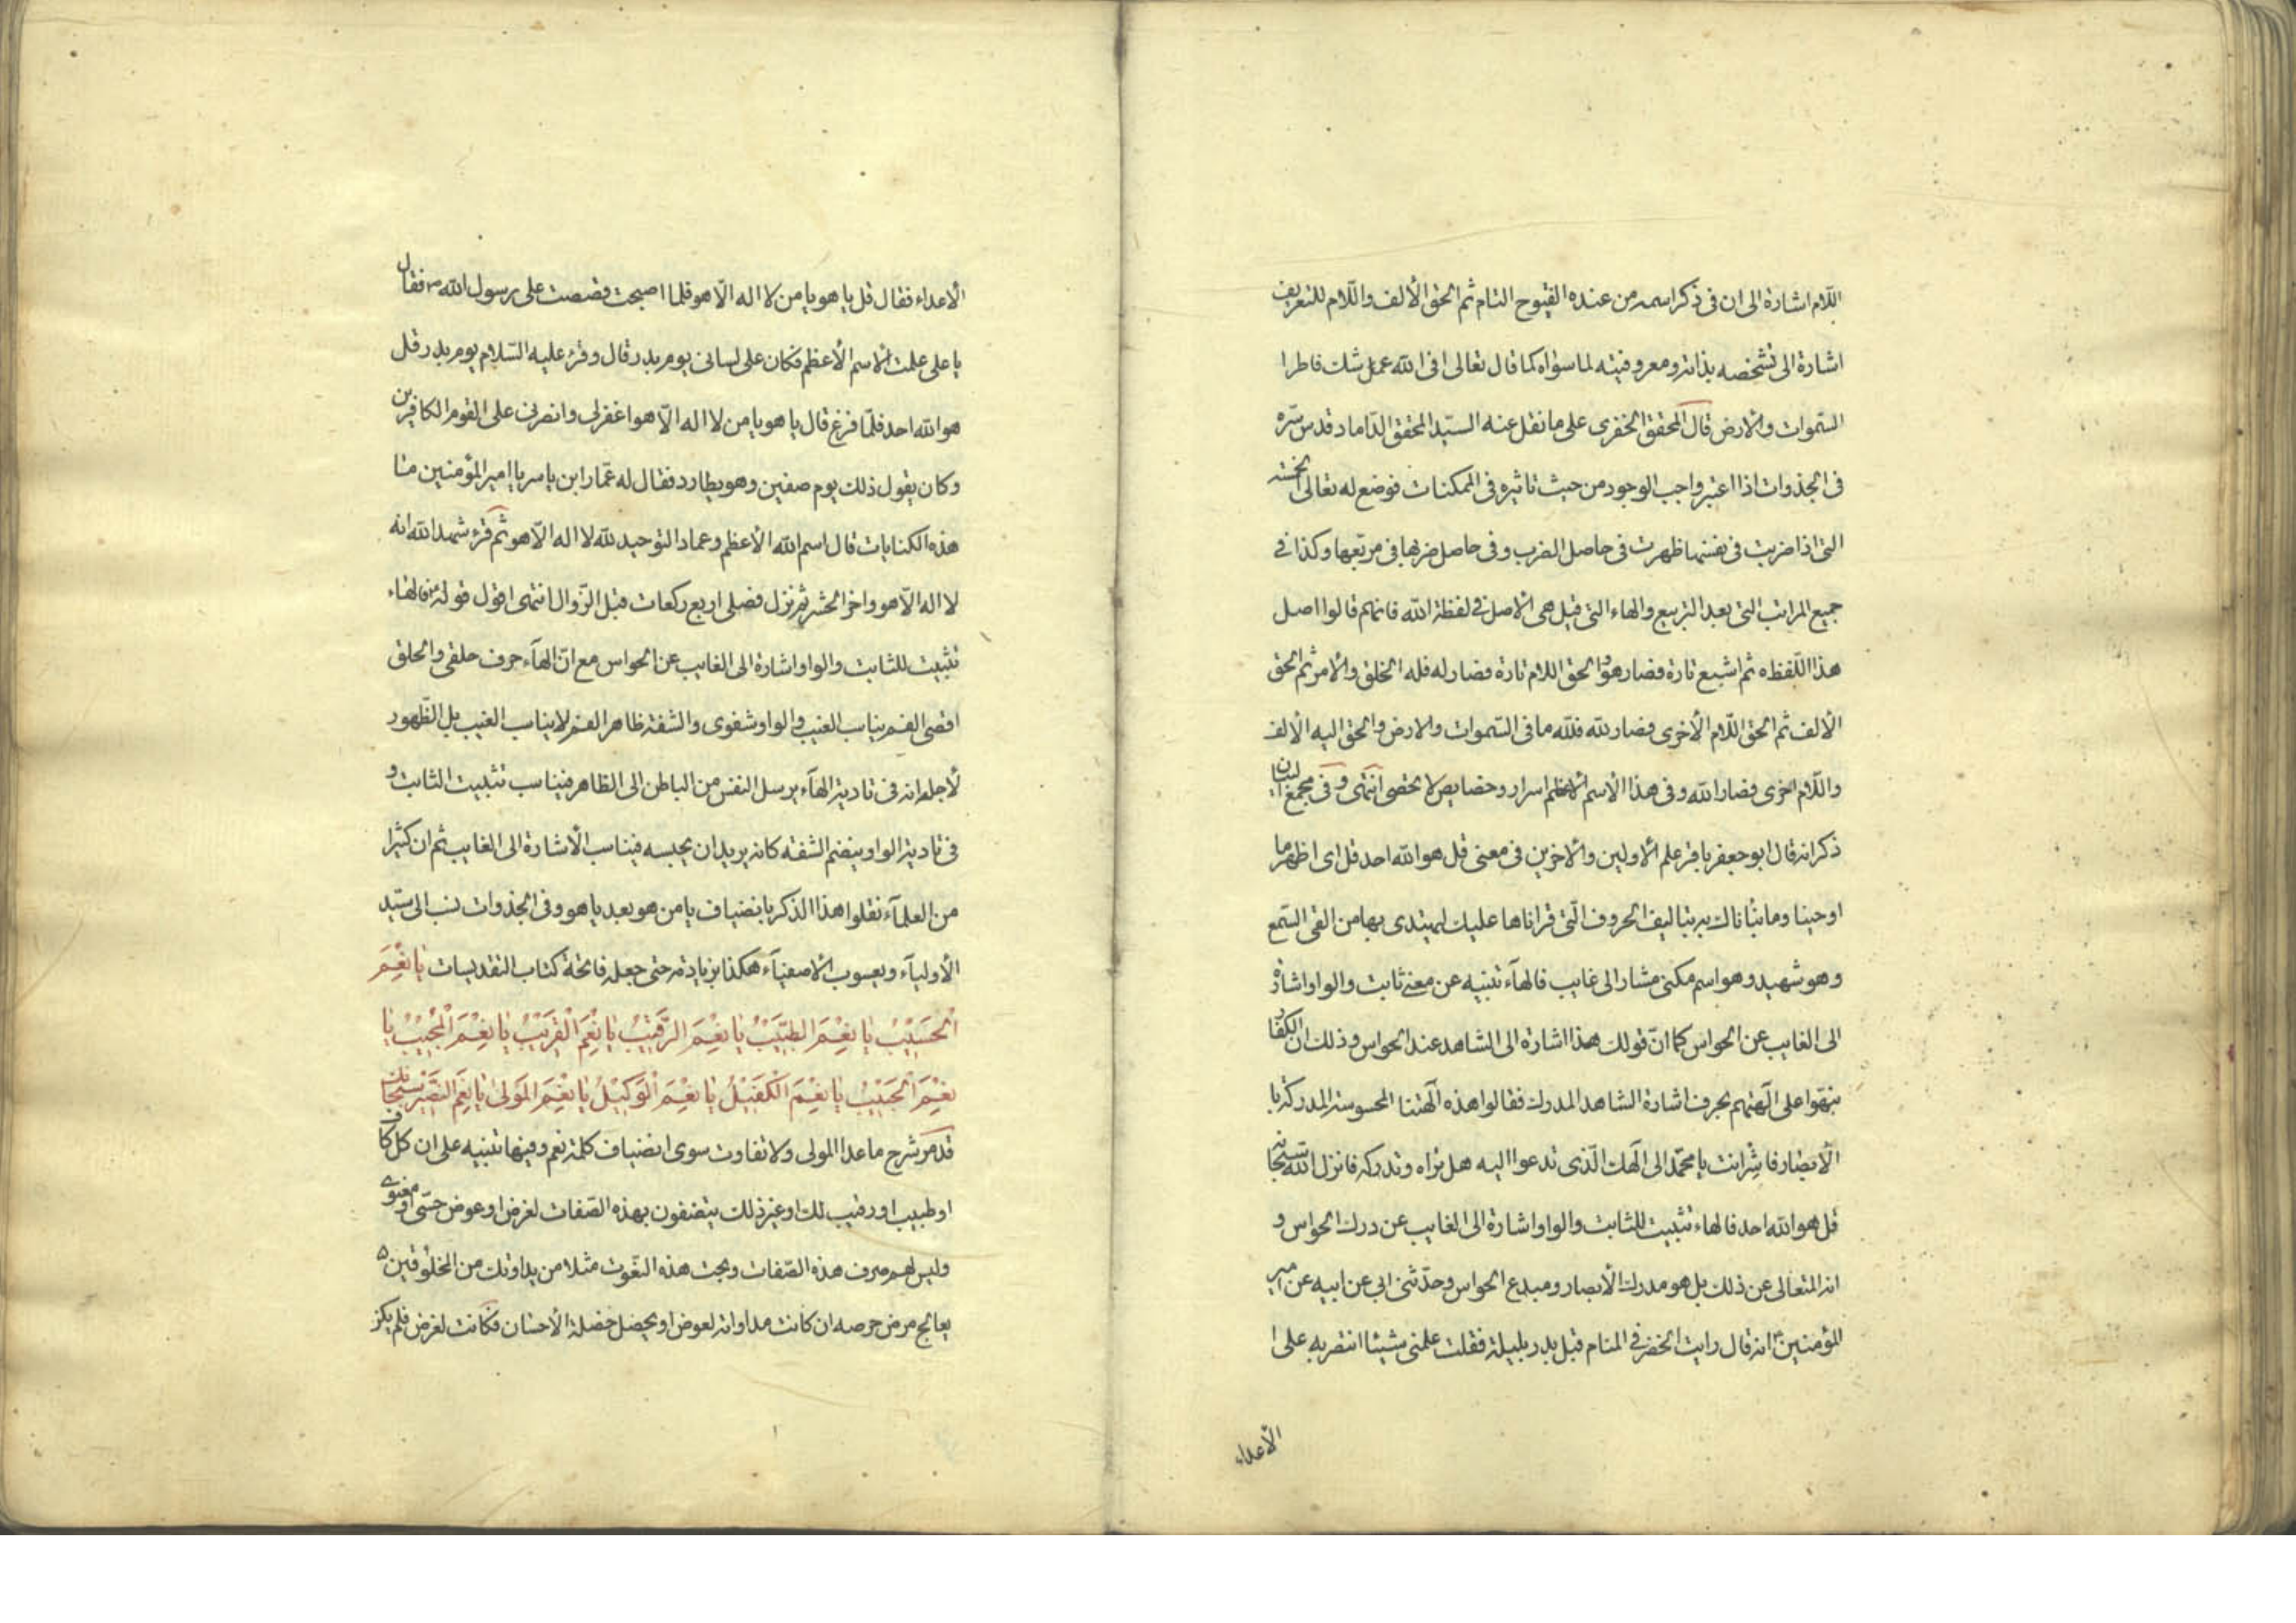 اللّام اشارة الى ان فى ذكر اسمه من عنده الفيوح التام ثم الحق الألف واللّام للتعريف
اشارة الى تشخصه بذاته ومعروفيته لما سواه كما قال تعالى افى الله عمل شك فاطر ا
السّموات والارض قال المحقق الخفرى على ما نقل عنه السيّد المحقق الدّاماد قدس سّره
فى الجذوات اذا اعتبر واجب الوجود من حيث تاثيره فى الممكنات فوضع له تعالى الخمسة
التى اذا ضربت فى نفسها ظهرت فى حاصل الضرب وفى حاصل ضربها فى مربّعها وكذا فى
جميع المراتب التى بعد التربيع والهاء التى قيل هى الاصل فى لفظة الله فانهم قالوا اصل
هذا اللّفظه ثم اشبع تارة فصار هو والحق اللام تارة فصار له فله الخلق والامر ثم الحق
الألف ثم الحق اللّام الأخرى فصار لله فلله ما فى السّموات والارض والحق اليه الألف
واللّام اخرى فصار الله وفى هذا الأسم الاعظم اسرار وخصايص لا تحصى انتهى وفى مجمع البيان
ذكر انه قال ابو جعفر باقر علم الأولين والاخرين فى معنى قل هو الله احد قل اى اظهر ما
اوحينا وما نبّاناك به بتاليف الحروف الّتى قراناها عليك ليهتدى بها من القى السّمع
وهو شهيد وهو اسم مكنى مشار الى غايب فالهآء تنبيه عن معنى ثابت والواو اشارة
الى الغايب عن الحواس كما انّ قولك هذا اشارة الى الشاهد عند الحواس وذلك ان الكفار
نبهّوا على آلهتهم بحرف اشارة الشاهد المدرك فقالوا هذه آلهتنا المحسوسة المدركة با
الأبصار فاشر انت يا محمّد الى الهك الّذى تدعوا اليه هل نراه وندركه فانزل الله سبحانه
قل هو الله احد فالهاء تثبيت للثابت والواو اشارة الى الغايب عن درك الحواس و
انه المتعالى عن ذلك بل هو مدرك الأبصار ومبدع الحواس وحدّثنى ابى عن ابيه عن امير
المؤمنين انه قال رايت الخضر فى المنام قبل بدر بليلة فقلت علمنى شيئا انتصر به على ا
الأعداء
الأعداء فقال قل يا هو يا من لا اله الّا هو فلما اصبحت قصصت على رسول الله فقال
يا على علمت الاسم الأعظم فكان على لسانى يوم بدر قال وقرء عليه السّلام يوم بدر قل
هو الله احد فلمّا فرغ قال يا هو يا من لا اله الّا هو اغفر لى وانصرنى على القوم الكافرين
وكان يقول ذلك يوم صفين وهو يطارد فقال له عمّار ابن ياسر يا امير المؤمنين ما
هذه الكنايات قال اسم الله الأعظم وعماد التوحيد لله لا اله الّا هو ثم قرء شهد الله انه
لا اله الّا هو واخر الحشر ثم نزل فصلى اربع ركعات قبل الزّوال انتهى اقول قوله فالهاء
تثبيت للثابت والواو اشارة الى الغايب عن الحواس مع انّ الهآء حرف حلقى والحلق
اقصى الفم يناسب الغيب والواو شفوى والشفة ظاهر الفم لا يناسب الغيب بل الظهور
لأجل انه فى تادية الهآء يرسل النفس من الباطن الى الظاهر فيناسب تثبيت الثابت و
فى تادية الواو ينضم الشفه كانه يريد ان يحبسه فيناسب الأشارة الى الغايب ثم ان كثيرا
من العلمآء نقلوا هذا الذكر بانضياف يا من هو بعد يا هو وفى الجذوات نسب الى سيّد
الأوليآء ويعسوب الاصفيآء هكذا بزيادة حتى جعله فاتحة كتاب التقديسات يا نِعْمَ
الْحَسيْبُ يا نِعْمَ الطّبيْبُ يا نِعْمَ الرَّقيْبُ يا نِعْمَ الْقَريْبُ يا نِعْمَ الْمُجيْبُ يا
نِعْمَ الْحَبيْبُ يا نِعْمَ الْكَفيْلُ يا نِعْمَ الْوَكيْلُ يا نِعْمَ المَولى يا نِعْمَ النَّصيْر سبحانك
قد مر شرح ما عدا المولى ولا تفاوت سوى انضياف كلمة نعم وفيها تنبيه على ان كل كاف
او طبيب او رقيب لك او غير ذلك يتصفون بهذه الصّفات لغرض او عوض حسّى او معنوى
وليس لهم صرف هذه الصّفات وبحت هذه النّعوت مثلا من يداويك من المخلوقين
يعالج مرض حرصه ان كانت مداواته لعوض او يحصل خصلة الأحسان فكانت لغرض فلم يكن